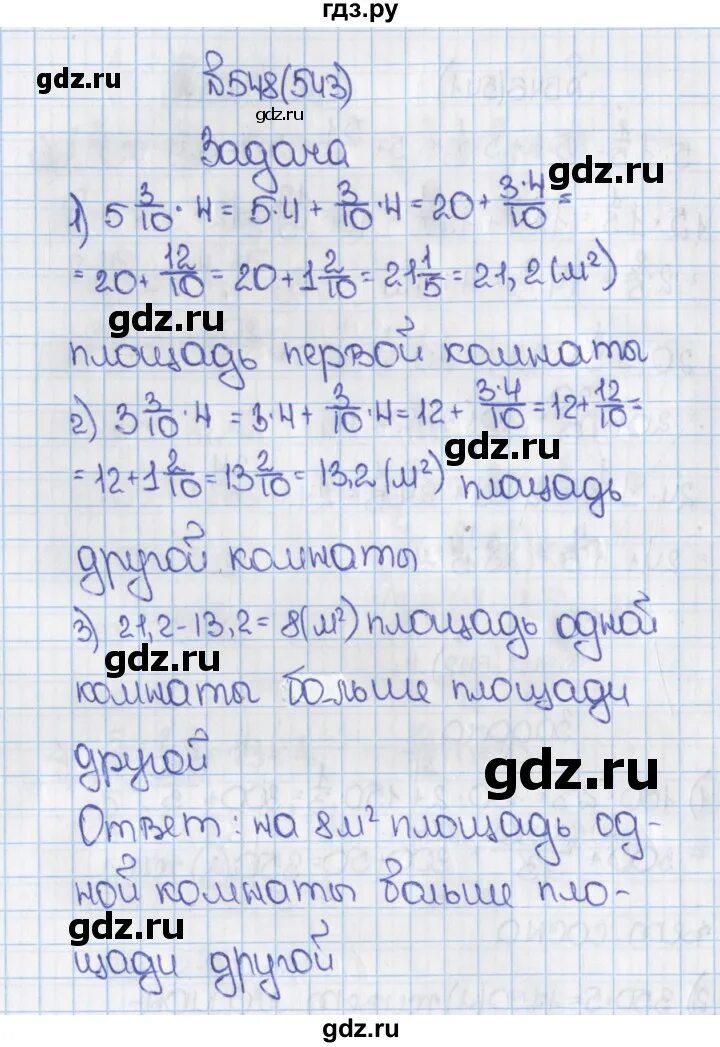 гдз.ру
gdz.ru
№548(543)
gdz.ru
Задача
gdz.ru
1) 5 3/10 · 4 = 5·4 + 3/10 · 4 = 20 + 3·4/10 =
= 20 + 12/10 = 20 + 1 2/10 = 21 1/5 = 21,2 (м²)
gdz.ru
площадь первой комнаты
2) 3 3/10 · 4 = 3·4 + 3/10 · 4 = 12 + 3·4/10 = 12 + 12/10 =
gdz.ru
= 12 + 1 2/10 = 13 2/10 = 13,2 (м²) площадь
другой комнаты
3) 21,2 - 13,2 = 8 (м²) площадь одной
gdz.ru
комнаты больше площади
другой
gdz.ru
Ответ: на 8 м² площадь од-
ной комнаты больше пло-
gdz.ru
щади другой
gdz.ru